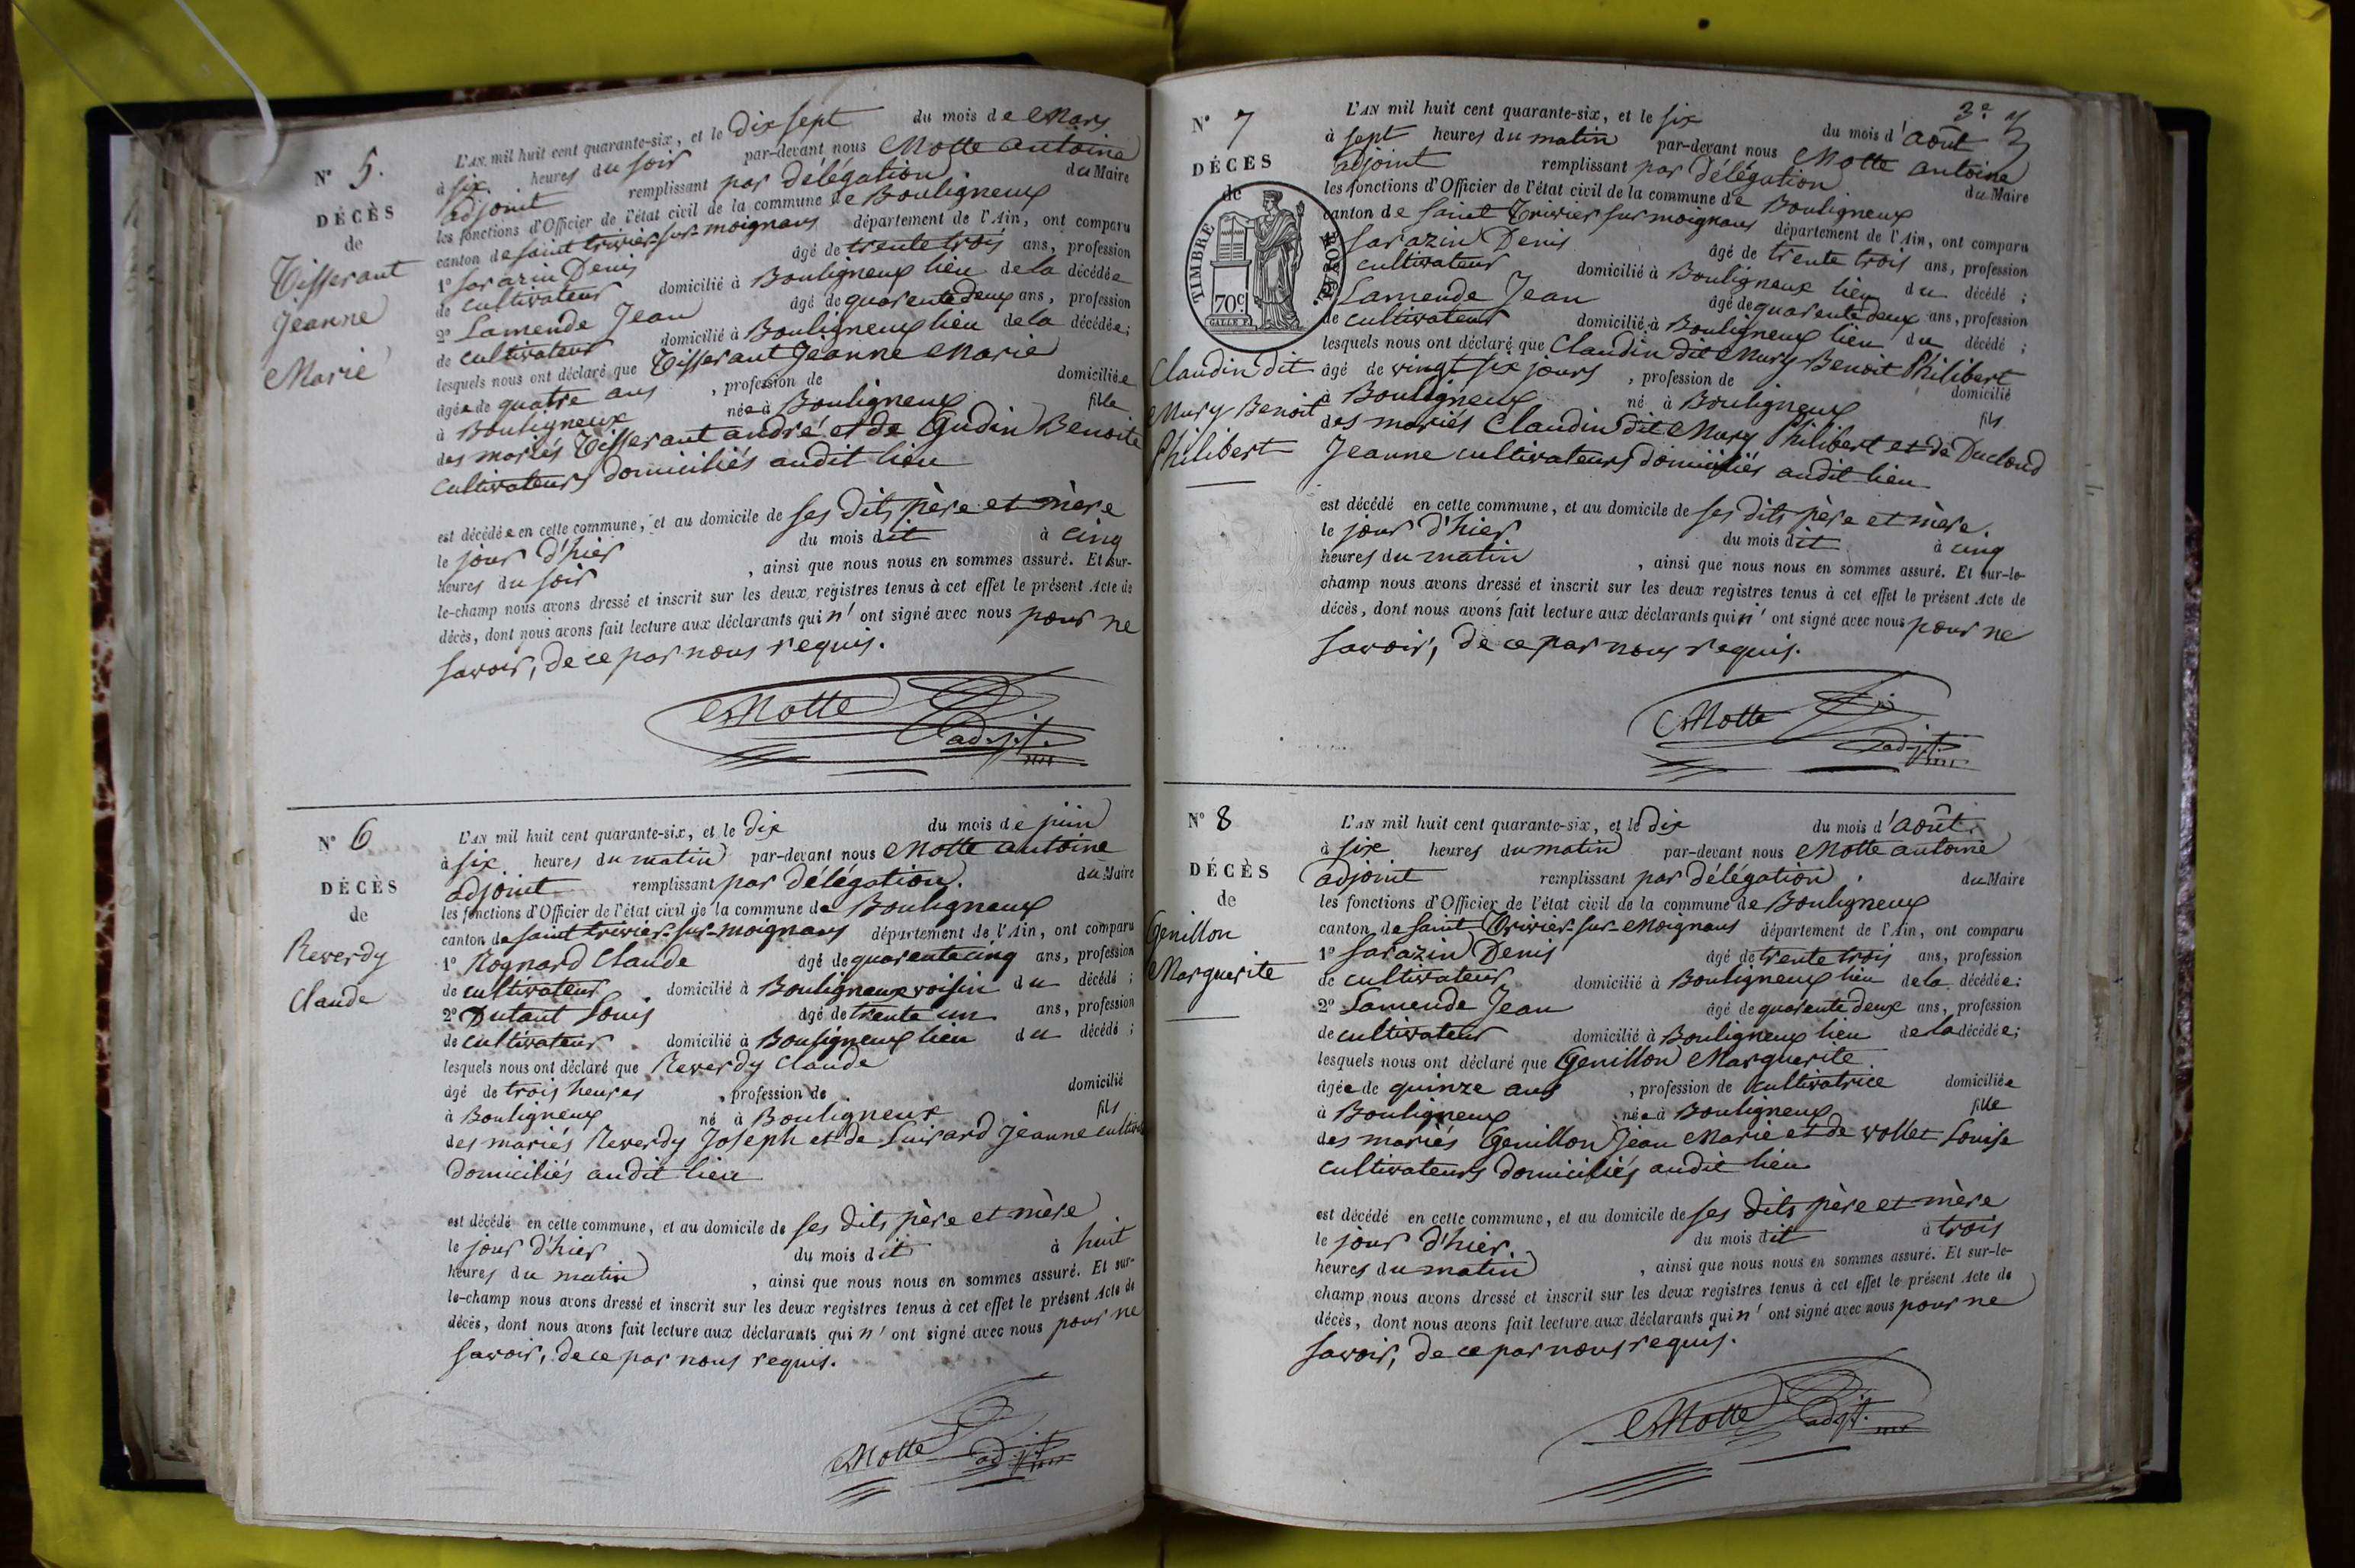 N° 5.
DÉCÈS
de
Tisserant
Jeanne
Marie
L'AN mil huit cent quarante-six, et le Dix sept du mois de Mars
à six heures du soir par-devant nous Motte antoine
adjoint remplissant par délégation du Maire
les fonctions d'Officier de l'état civil de la commune de Bouligneux
canton de saint trivier-sur-moignans département de l'Ain, ont comparu
1° Sarazin Denis âgé de trente trois ans, profession
de cultivateur domicilié à Bouligneux lieu de la décédée
2° Lamende Jean âgé de quarente deux ans, profession
de cultivateur domicilié à Bouligneux lieu de la décédée;
lesquels nous ont déclaré que Tisserant Jeanne Marie
âgée de quatre ans , profession de domiciliée
à Bouligneux née à Bouligneux fille
des mariés Tisserant andré et de Gudin Benoite
cultivateurs domiciliés audit lieu
est décédée en cette commune, et au domicile de ses dits père et mère
le jour d'hier du mois dit à cinq
heures du soir , ainsi que nous nous en sommes assuré. Et sur-
le-champ nous avons dressé et inscrit sur les deux registres tenus à cet effet le présent Acte de
décès, dont nous avons fait lecture aux déclarants qui n' ont signé avec nous pour ne
savoir, de ce par nous requis.
Motte
adjt.
N° 6
DÉCÈS
de
Reverdy
Claude
L'AN mil huit cent quarante-six, et le dix du mois de juin
à six heures du matin par-devant nous Motte antoine
adjoint remplissant par délégation. du Maire
les fonctions d'Officier de l'état civil de la commune de Bouligneux
canton de saint trivier-sur-moignans département de l'Ain, ont comparu
1° Rognard Claude âgé de quarente cinq ans, profession
de cultivateur domicilié à Bouligneux voisin du décédé ;
2° Dutant Louis âgé de trente un ans, profession
de cultivateur domicilié à Bouligneux lieu du décédé ;
lesquels nous ont déclaré que Reverdy Claude
âgé de trois heures , profession de domicilié
à Bouligneux né à Bouligneux fils
des mariés Reverdy Joseph et de Luivard Jeanne
domiciliés audit lieu
est décédé en cette commune, et au domicile de ses dits père et mère
le jour d'hier du mois dit à huit
heures du matin , ainsi que nous nous en sommes assuré. Et sur-
le-champ nous avons dressé et inscrit sur les deux registres tenus à cet effet le présent Acte de
décès, dont nous avons fait lecture aux déclarants qui n' ont signé avec nous pour ne
savoir, de ce par nous requis.
Motte adjt
3e
N° 7
DÉCÈS
de
TIMBRE ROYAL
70c
Claudin dit
Mury Benoit
Philibert
L'AN mil huit cent quarante-six, et le six du mois d'août
à sept heures du matin par-devant nous Motte antoine
adjoint remplissant par délégation du Maire
les fonctions d'Officier de l'état civil de la commune de Bouligneux
canton de saint Trivier sur moignans département de l'Ain, ont comparu
Sarazin Denis âgé de trente trois ans, profession
cultivateur domicilié à Bouligneux lieu du décédé ;
Lamende Jean âgé de quarente deux ans, profession
de cultivateur domicilié à Bouligneux lieu du décédé ;
lesquels nous ont déclaré que Claudin dit Mury Benoit Philibert
âgé de vingt six jours , profession de domicilié
à Bouligneux né à Bouligneux fils
des mariés Claudin dit Mury Philibert et de Ducloud
Jeanne cultivateurs domiciliés audit lieu
est décédé en cette commune, et au domicile de ses dits père et mère.
le jour d'hier du mois dit à cinq
heures du matin , ainsi que nous nous en sommes assuré. Et sur-le-
champ nous avons dressé et inscrit sur les deux registres tenus à cet effet le présent Acte de
décès, dont nous avons fait lecture aux déclarants qui n' ont signé avec nous pour ne
savoir, de ce par nous requis.
Motte
adjt.
N° 8
DÉCÈS
de
Genillon
Marguerite
L'AN mil huit cent quarante-six, et le dix du mois d'août
à six heures du matin par-devant nous Motte antoine
adjoint remplissant par délégation du Maire
les fonctions d'Officier de l'état civil de la commune de Bouligneux
canton de saint Trivier-sur-Moignans département de l'Ain, ont comparu
1° Sarazin Denis âgé de trente trois ans, profession
de cultivateur domicilié à Bouligneux lieu de la décédée;
2° Lamende Jean âgé de quarente deux ans, profession
de cultivateur domicilié à Bouligneux lieu de la décédée;
lesquels nous ont déclaré que Genillon Marguerite
âgée de quinze ans , profession de cultivatrice domiciliée
à Bouligneux née à Bouligneux fille
des mariés Genillon Jean Marie et de vollet Louise
cultivateurs domiciliés audit lieu
est décédé en cette commune, et au domicile de ses dits père et mère
le jour d'hier. du mois dit à trois
heures du matin , ainsi que nous nous en sommes assuré. Et sur-le-
champ nous avons dressé et inscrit sur les deux registres tenus à cet effet le présent Acte de
décès, dont nous avons fait lecture aux déclarants qui n' ont signé avec nous pour ne
savoir, de ce par nous requis.
Motte adjt.